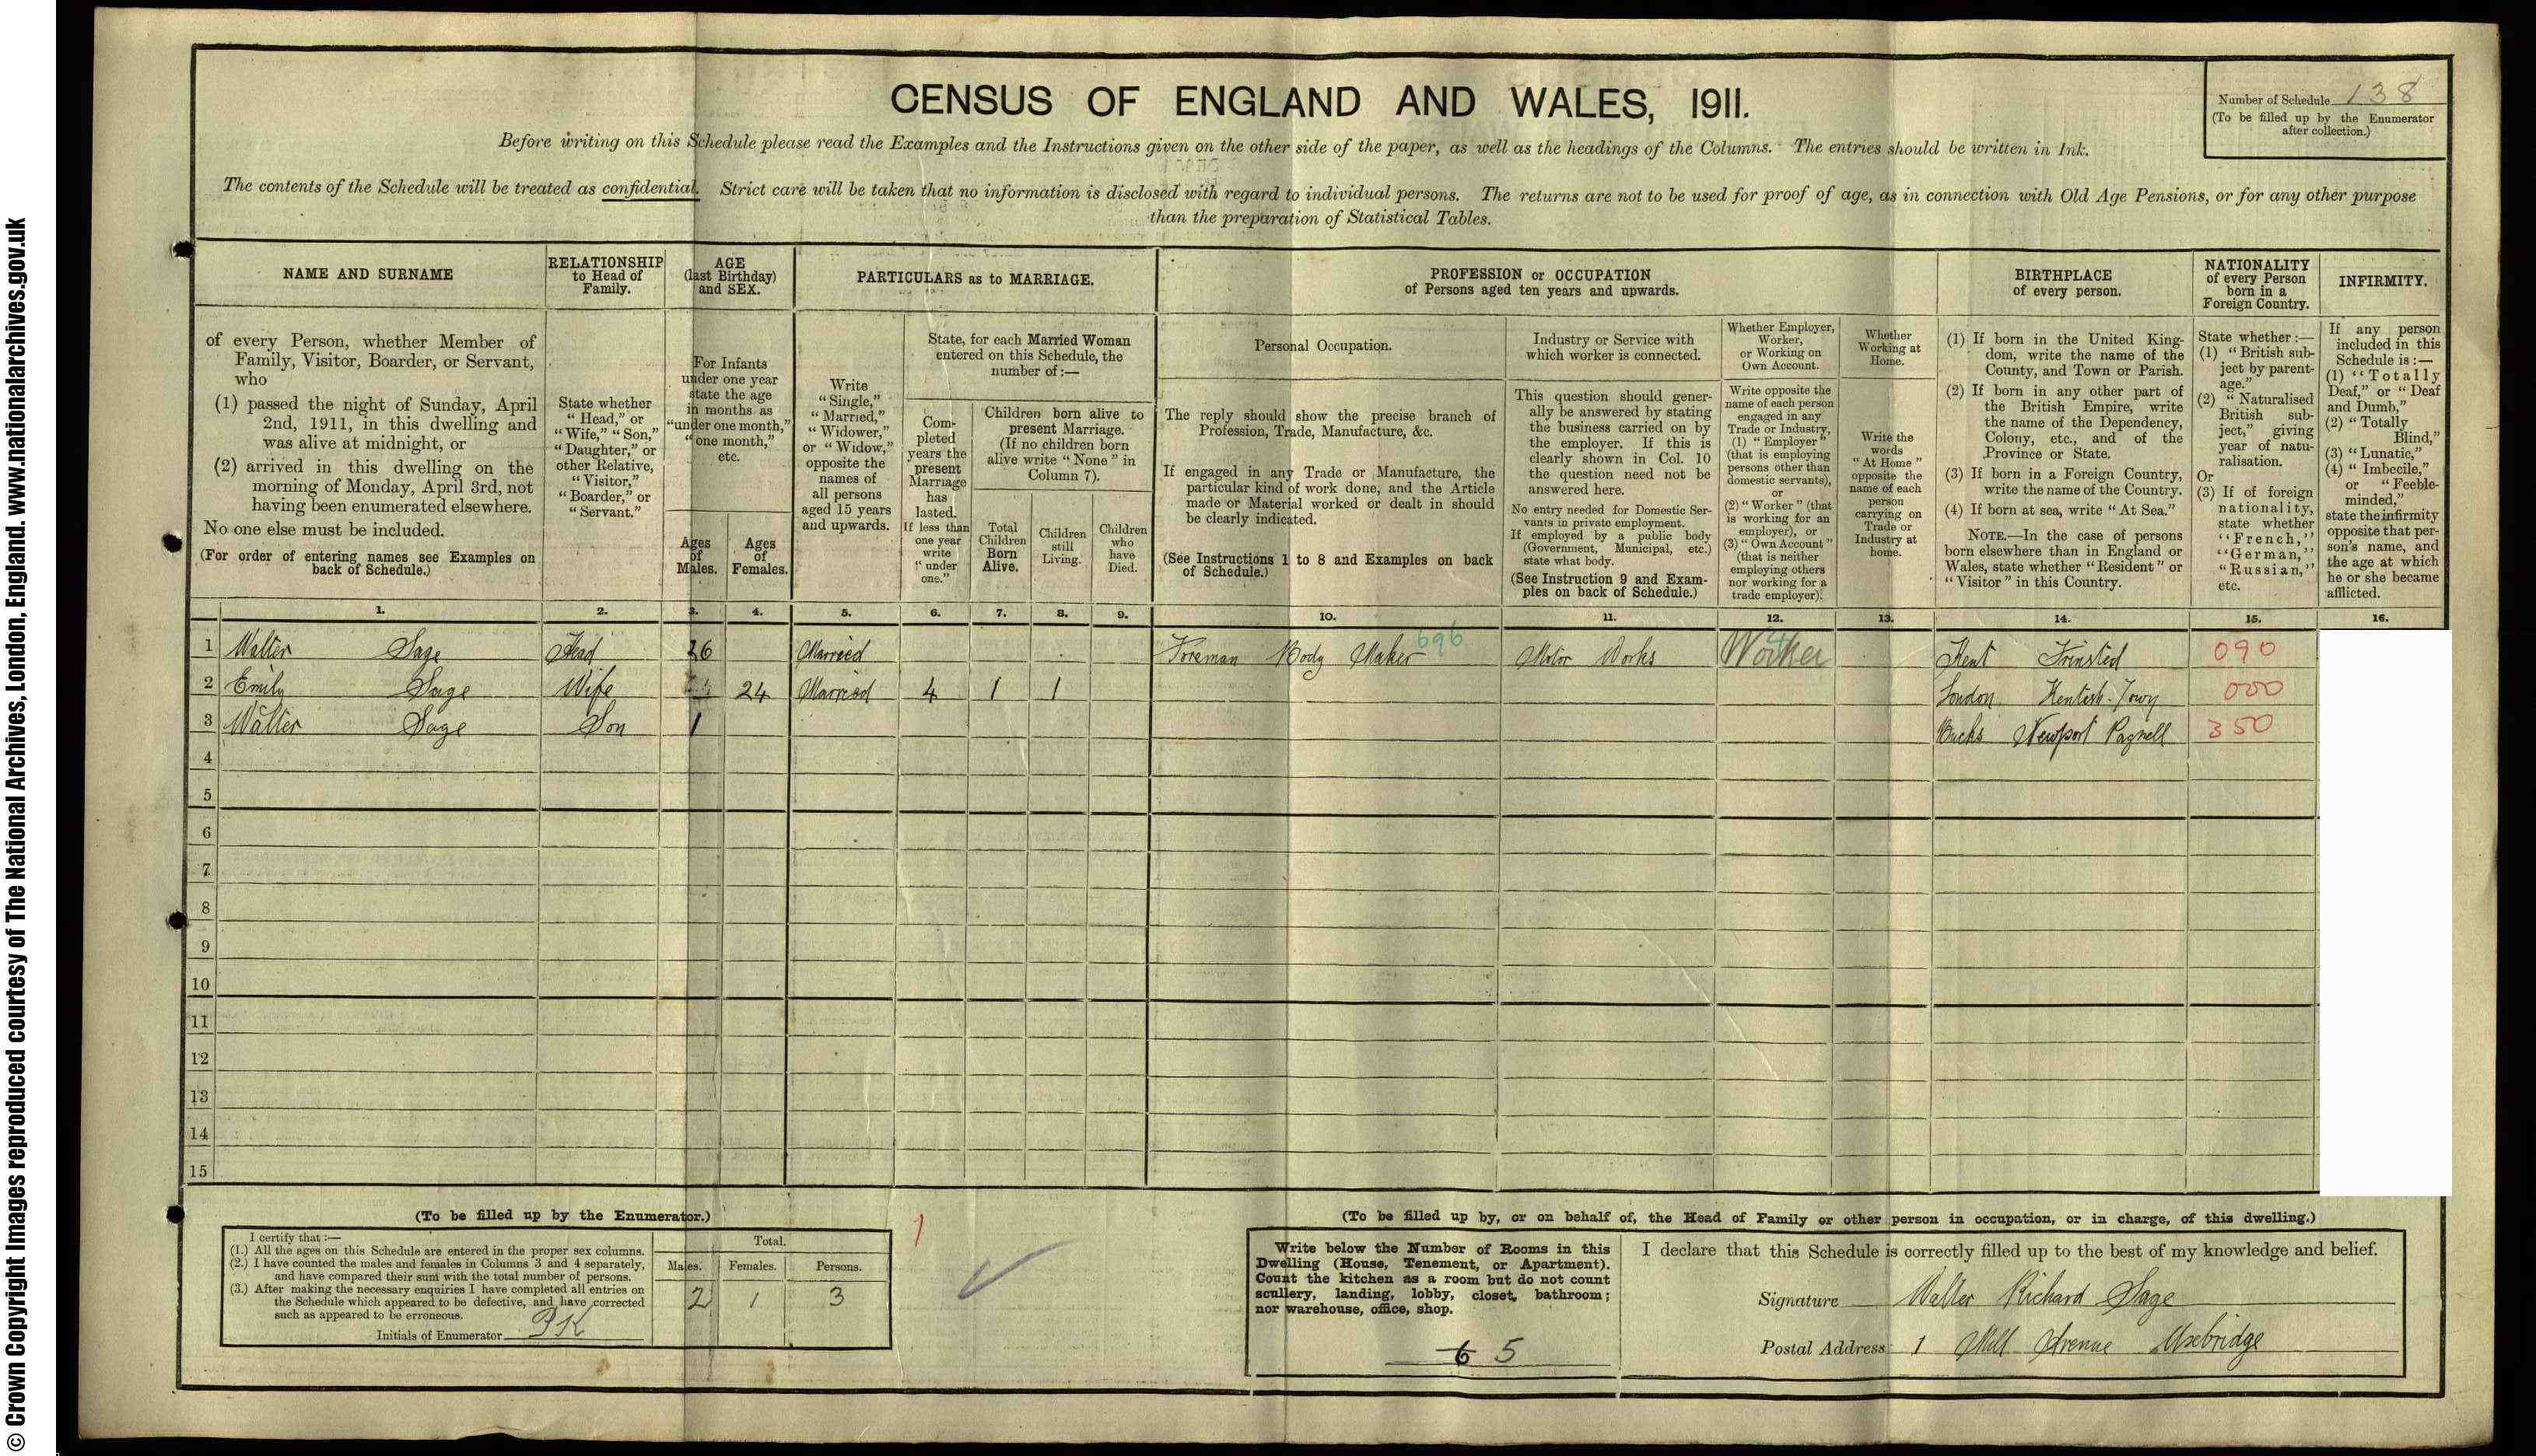 CENSUS OF ENGLAND AND WALES, 1911.
Number of Schedule 138
(To be filled up by the Enumerator
after collection.)
Before writing on this Schedule please read the Examples and the Instructions given on the other side of the paper, as well as the headings of the Columns. The entries should be written in Ink.
The contents of the Schedule will be treated as confidential. Strict care will be taken that no information is disclosed with regard to individual persons. The returns are not to be used for proof of age, as in connection with Old Age Pensions, or for any other purpose
than the preparation of Statistical Tables.
NAME AND SURNAME
of every Person, whether Member of
Family, Visitor, Boarder, or Servant,
who
(1) passed the night of Sunday, April
2nd, 1911, in this dwelling and
was alive at midnight, or
(2) arrived in this dwelling on the
morning of Monday, April 3rd, not
having been enumerated elsewhere.
No one else must be included.
(For order of entering names see Examples on
back of Schedule.)
RELATIONSHIP
to Head of
Family.
State whether
"Head," or
"Wife," "Son,"
"Daughter," or
other Relative,
"Visitor,"
"Boarder," or
"Servant."
AGE
(last Birthday)
and SEX.
For Infants
under one year
state the age
in months as
"under one month,"
"one month,"
etc.
Ages
of
Males.
Ages
of
Females.
PARTICULARS as to MARRIAGE.
Write
"Single,"
"Married,"
"Widower,"
or "Widow,"
opposite the
names of
all persons
aged 15 years
and upwards.
State, for each Married Woman
entered on this Schedule, the
number of :—
Com-
pleted
years the
present
Marriage
has
lasted.
If less than
one year
write
"under
one."
Children born alive to
present Marriage.
(If no children born
alive write "None" in
Column 7).
Total
Children
Born
Alive.
Children
still
Living.
Children
who
have
Died.
PROFESSION or OCCUPATION
of Persons aged ten years and upwards.
Personal Occupation.
The reply should show the precise branch of
Profession, Trade, Manufacture, &c.
If engaged in any Trade or Manufacture, the
particular kind of work done, and the Article
made or Material worked or dealt in should
be clearly indicated.
(See Instructions 1 to 8 and Examples on back
of Schedule.)
Industry or Service with
which worker is connected.
This question should gener-
ally be answered by stating
the business carried on by
the employer. If this is
clearly shown in Col. 10
the question need not be
answered here.
No entry needed for Domestic Ser-
vants in private employment.
If employed by a public body
(Government, Municipal, etc.)
state what body.
(See Instruction 9 and Exam-
ples on back of Schedule.)
Whether Employer,
Worker,
or Working on
Own Account.
Write opposite the
name of each person
engaged in any
Trade or Industry,
(1) "Employer"
(that is employing
persons other than
domestic servants),
or
(2) "Worker" (that
is working for an
employer), or
(3) "Own Account"
(that is neither
employing others
nor working for a
trade employer).
Whether
Working at
Home.
Write the
words
"At Home"
opposite the
name of each
person
carrying on
Trade or
Industry at
home.
BIRTHPLACE
of every person.
(1) If born in the United King-
dom, write the name of the
County, and Town or Parish.
(2) If born in any other part of
the British Empire, write
the name of the Dependency,
Colony, etc., and of the
Province or State.
(3) If born in a Foreign Country,
write the name of the Country.
(4) If born at sea, write "At Sea."
NOTE.—In the case of persons
born elsewhere than in England or
Wales, state whether "Resident" or
"Visitor" in this Country.
NATIONALITY
of every Person
born in a
Foreign Country.
State whether :—
(1) "British sub-
ject by parent-
age."
(2) "Naturalised
British sub-
ject," giving
year of natu-
ralisation.
Or
(3) If of foreign
nationality,
state whether
"French,"
"German,"
"Russian,"
etc.
INFIRMITY.
If any person
included in this
Schedule is :—
(1) "Totally
Deaf," or "Deaf
and Dumb,"
(2) "Totally
Blind,"
(3) "Lunatic,"
(4) "Imbecile,"
or "Feeble-
minded,"
state the infirmity
opposite that per-
son's name, and
the age at which
he or she became
afflicted.
1. 2. 3. 4. 5. 6. 7. 8. 9. 10. 11. 12. 13. 14. 15. 16.
1 Walter Sage Head 26 Married Foreman Body Maker 696 Motor Works Worker Kent Frinsted 090
2 Emily Sage Wife 24 Married 4 1 1 London Kentish Town 000
3 Walter Sage Son 1 Bucks Newport Pagnell 350
4
5
6
7
8
9
10
11
12
13
14
15
(To be filled up by the Enumerator.)
I certify that :—
(1.) All the ages on this Schedule are entered in the proper sex columns.
(2.) I have counted the males and females in Columns 3 and 4 separately,
and have compared their sum with the total number of persons.
(3.) After making the necessary enquiries I have completed all entries on
the Schedule which appeared to be defective, and have corrected
such as appeared to be erroneous.
Initials of Enumerator PK
Total.
Males. Females. Persons.
2 1 3
1
(To be filled up by, or on behalf of, the Head of Family or other person in occupation, or in charge, of this dwelling.)
Write below the Number of Rooms in this
Dwelling (House, Tenement, or Apartment).
Count the kitchen as a room but do not count
scullery, landing, lobby, closet, bathroom;
nor warehouse, office, shop.
6 5
I declare that this Schedule is correctly filled up to the best of my knowledge and belief.
Signature Walter Richard Sage
Postal Address 1 Mill Avenue Uxbridge
© Crown Copyright Images reproduced courtesy of The National Archives, London, England. www.nationalarchives.gov.uk